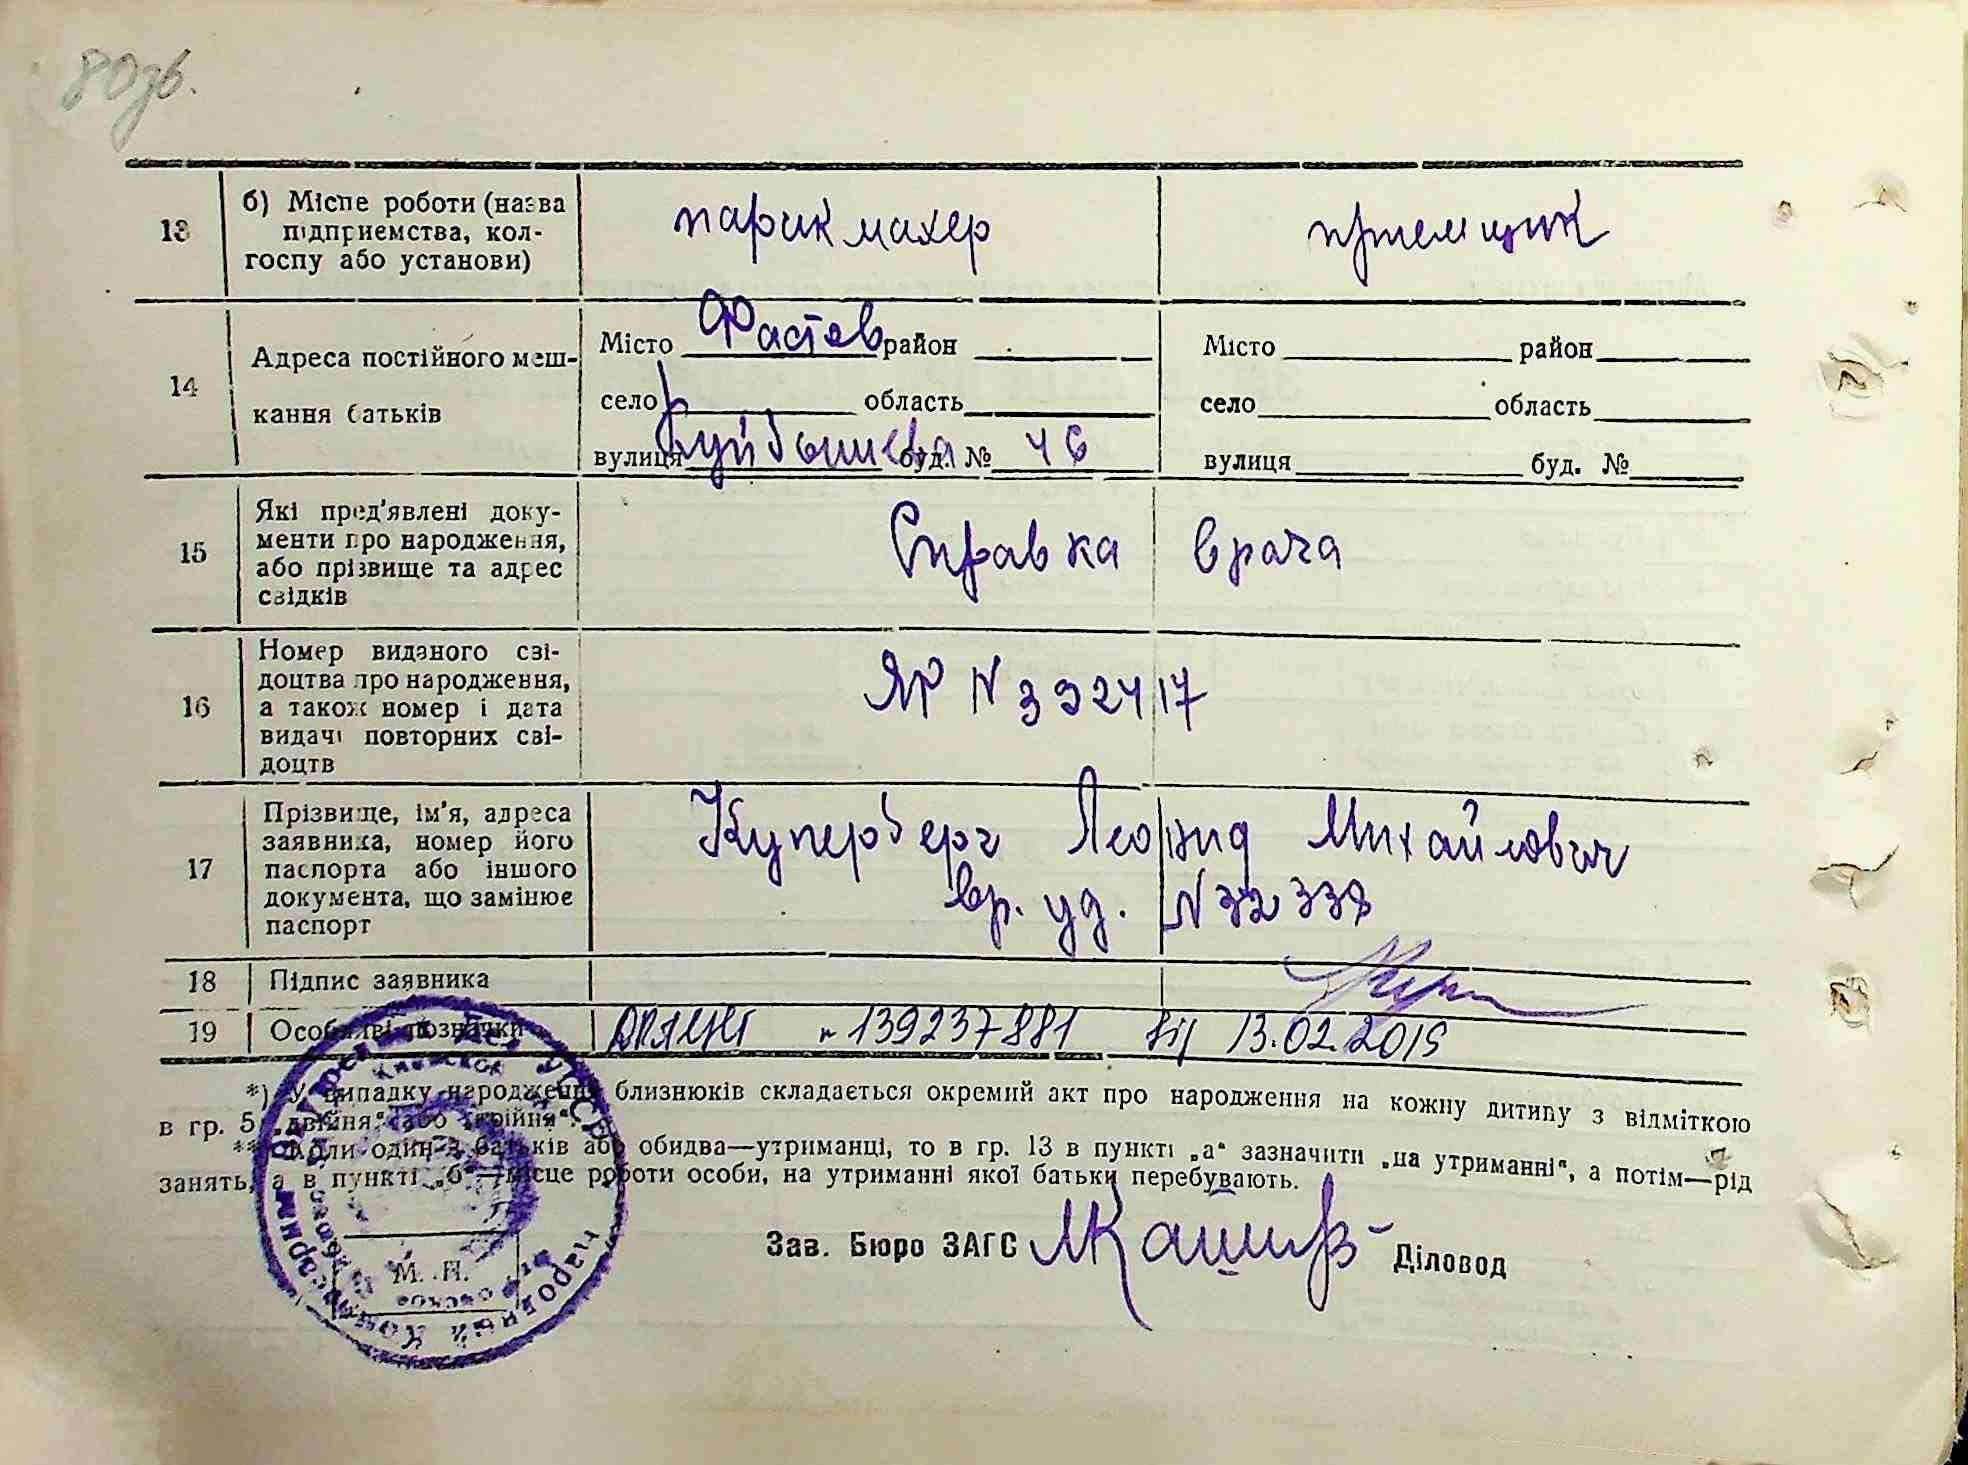 80 зв.
13 б) Місце роботи (назва підприємства, колгоспу або установи) парикмахер приемщик
14 Адреса постійного мешкання батьків
Місто Фастов район Місто район
село область село область
вулиця Куйбышева буд. № 46 вулиця буд. №
15 Які пред'явлені документи про народження, або прізвище та адрес свідків Справка врача
16 Номер виданого свідоцтва про народження, а також номер і дата видачі повторних свідоцтв ЯР N 332417
17 Прізвище, ім'я, адреса заявника, номер його паспорта або іншого документа, що замінює паспорт Куперберг Леонид Михайлович
вр. уд. N 32338
18 Підпис заявника
19 Особливі позначки N 139237881 від 13.02.2015
*) У випадку народження близнюків складається окремий акт про народження на кожну дитину з відміткою
в гр. 5 „двійня“ або „трійня“.
** Коли один з батьків або обидва—утриманці, то в гр. 13 в пункті „а“ зазначити „на утриманні“, а потім—рід
занять, а в пункті „б“—місце роботи особи, на утриманні якої батьки перебувають.
Зав. Бюро ЗАГС Діловод
М. П.